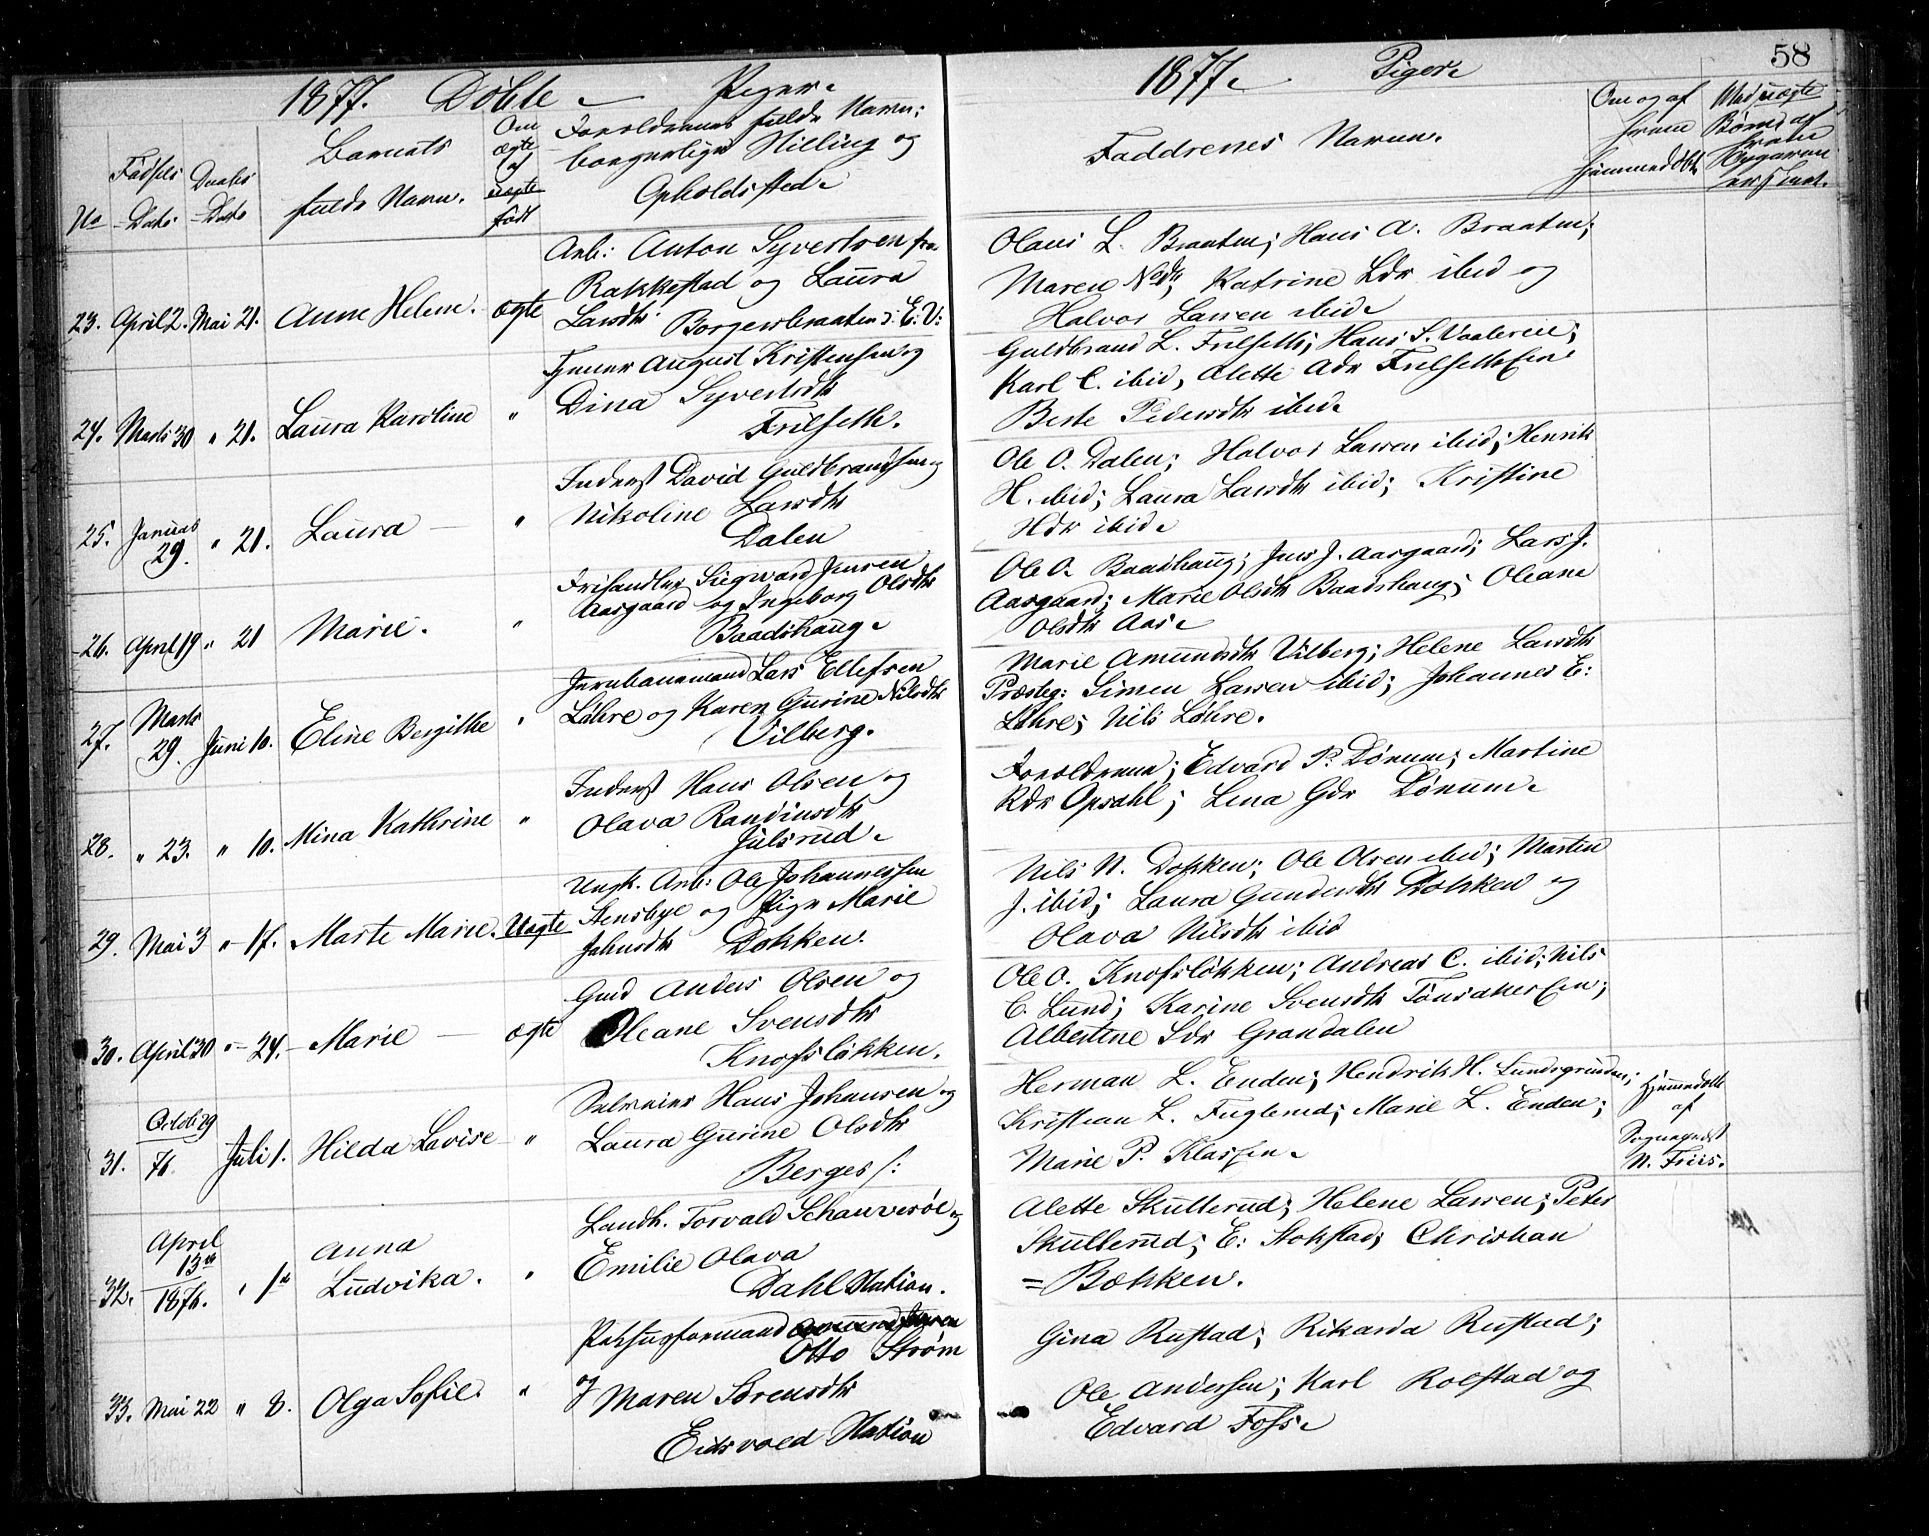 1877. Döbte Piger.
No
Fødsels Dato
Daabs Dato
Barnets
fulde Navn.
Om
ægte
el
uægte
født
Forældrenes fulde Navn;
borgerlige Stilling og
Opholdssted.
23. April 2. Mai 21. Anne Helene. ægte
Arb: Anton Syvertsen fra
Rakkestad og Laura
Larsdtr Borgersbraaten i E. V:
24. Marts 30 " 21. Laura Karoline "
August Kristensen og
Dina Syvertsdtr
Frilseth.
25. Januar 29. " 21. Laura "
Inderst David Guldbrandsen og
Nikoline Larsdtr
Dalen
26. April 19 " 21 Marie. "
Frihandler Siegward Jensen
Aasgaard og Ingeborg Olsdtr
Baadshaug.
27. Marts 29. Juni 10. Eline Bergithe "
Jernbanemand Lars Ellefsen
Løhre og Karen Gurine Nilsdtr
Vilberg.
28. " 23. " 10. Mina Kathrine "
Inderst Hans Olsen og
Olava Randinsdtr
Julsrud.
29. Mai 3 " 17. Marte Marie. Uægte
Ungk. Arb: Ole Johannessen
Stensbye og Pige Marie
Jahnsdtr Dokken.
30. April 30 " 24. Marie ægte
Gmd Anders Olsen og
Oleane Svensdtr
Knofsløkken.
31. Octob 29 76. Juli 1. Hilda Lovise "
Hans Johansen og
Laura Gurine Olsdtr
Berges /:
32. April 13de 1876. " 1st Anna
Ludvika. "
Landh. Torvald Schauverøe og
Emilie Olava
Dahl Station.
33. Mai 22 " 8. Olga Sofie. "
Pakhusformand
Otto Strøm
og Maren Sørensdtr
Eidsvold Station
58
1877. Piger.
Faddrenes Navne.
Om og af
hvem
hjemmedøbt
Med uægte
Børn af
hvem
Opgaven
er skeet.
Olaus L. Braaten; Hans A. Braaten;
Maren Ndtr; Katrine Ldr ibid og
Halvor Larsen ibid.
Guldbrand L. Frilseth; Hans S. Vaalereie;
Karl C. ibid, Alette Adr Frilseth Ein
Berte Pedersdtr ibid.
Ole O. Dalen; Halvor Larsen ibid; Henrik
H. ibid; Laura Larsdtr ibid; Kristine
Hdr ibid.
Ole O. Baadshaug; Jens J. Aasgaard; Lars J.
Aasgaard; Marie Olsdtr Baadshaug; Oleane
Olsdtr Aas.
Marie Amundsdtr Vilberg; Helene Larsdtr
Præsteg: Simen Larsen ibid; Johannes E:
Løhre; Nils Løhre.
Forældrene; Edvard P. Dønum; Martine
Rdr Opsahl; Lina Gdr Dønum.
Nils N. Dokken; Ole Olsen ibid; Martin
J. ibid; Laura Gundersdtr Dokken og
Olava Nilsdtr ibid
Ole O. Knofsløkken; Andreas C. ibid; Nils
C. Lund; Karine Svensdtr Tønsaker Ein;
Albertine Sdr Grandalen
Herman L. Enden; Hendrik H. Lundsgrinden;
Kristian L. Fuglerud; Marie L. Enden;
Marie P. Klassen.
Hjemmedøbt
af
Sognepræst
N. Friis.
Alette Skullerud; Helene Larsen; Peter
Skullerud; E: Stokstad; Christian
= Bækken.
Gina Rustad; Rikarda Rustad;
Ole Andersen; Karl Rolstad og
Edvard Foss.